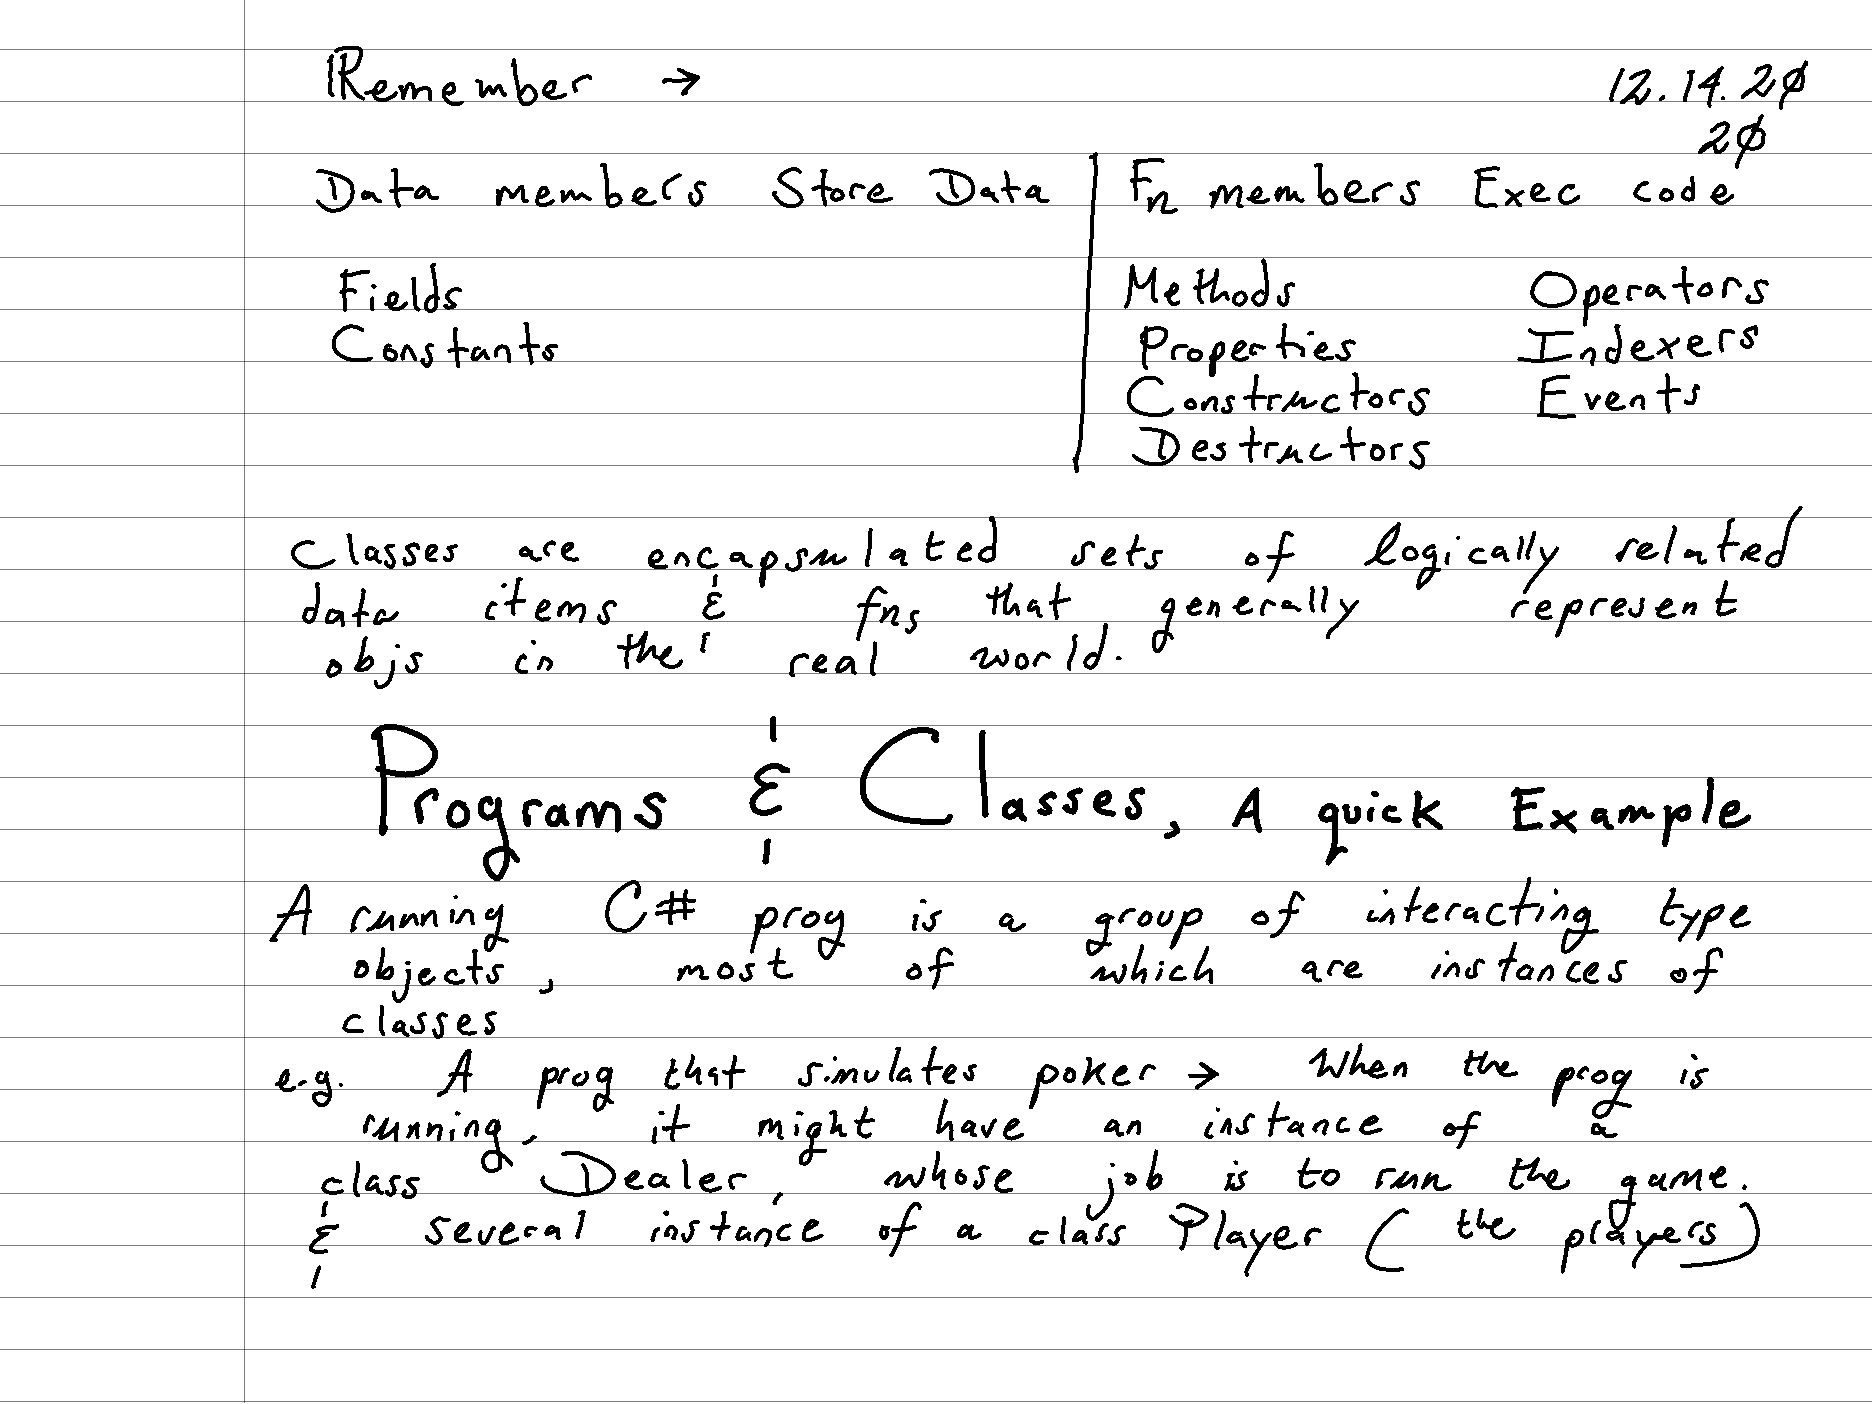 Remember →
12.14.20
20
Data members Store Data
Fn members Exec code
Fields
Constants
Methods
Properties
Constructors
Destructors
Operators
Indexers
Events
Classes are encapsulated sets of logically related
data items & fns that generally represent
objs in the real world.
Programs & Classes, A quick Example
A running C# prog is a group of interacting type
objects, most of which are instances of
classes
e.g. A prog that simulates poker → When the prog is
running, it might have an instance of a
class Dealer, whose job is to run the game.
& several instance of a class Player (the players)